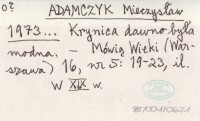 o?
ADAMCZYK Mieczysław
1973... Krynica dawno była
modna. – Mówią Wieki (War-
szawa) 16, nr 5: 19-23, il.
W XIX w.